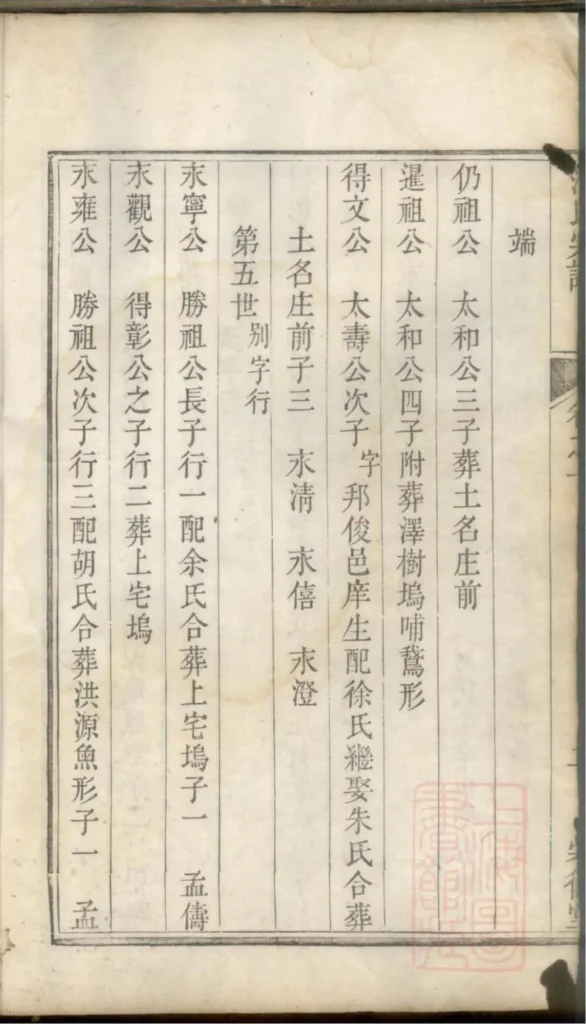 端
仍祖公　太和公三子葬土名庄前
暹祖公　太和公四子附葬澤樹塢哺鵞形
得文公　太壽公次子字邦俊邑庠生配徐氏繼娶朱氏合葬
土名庄前子三　永清　永僖　永澄
第五世別字行
永寧公　勝祖公長子行一配余氏合葬上宅塢子一　孟儔
永觀公　得彰公之子行二葬上宅塢
永雍公　勝祖公次子行三配胡氏合葬洪源魚形子一　孟